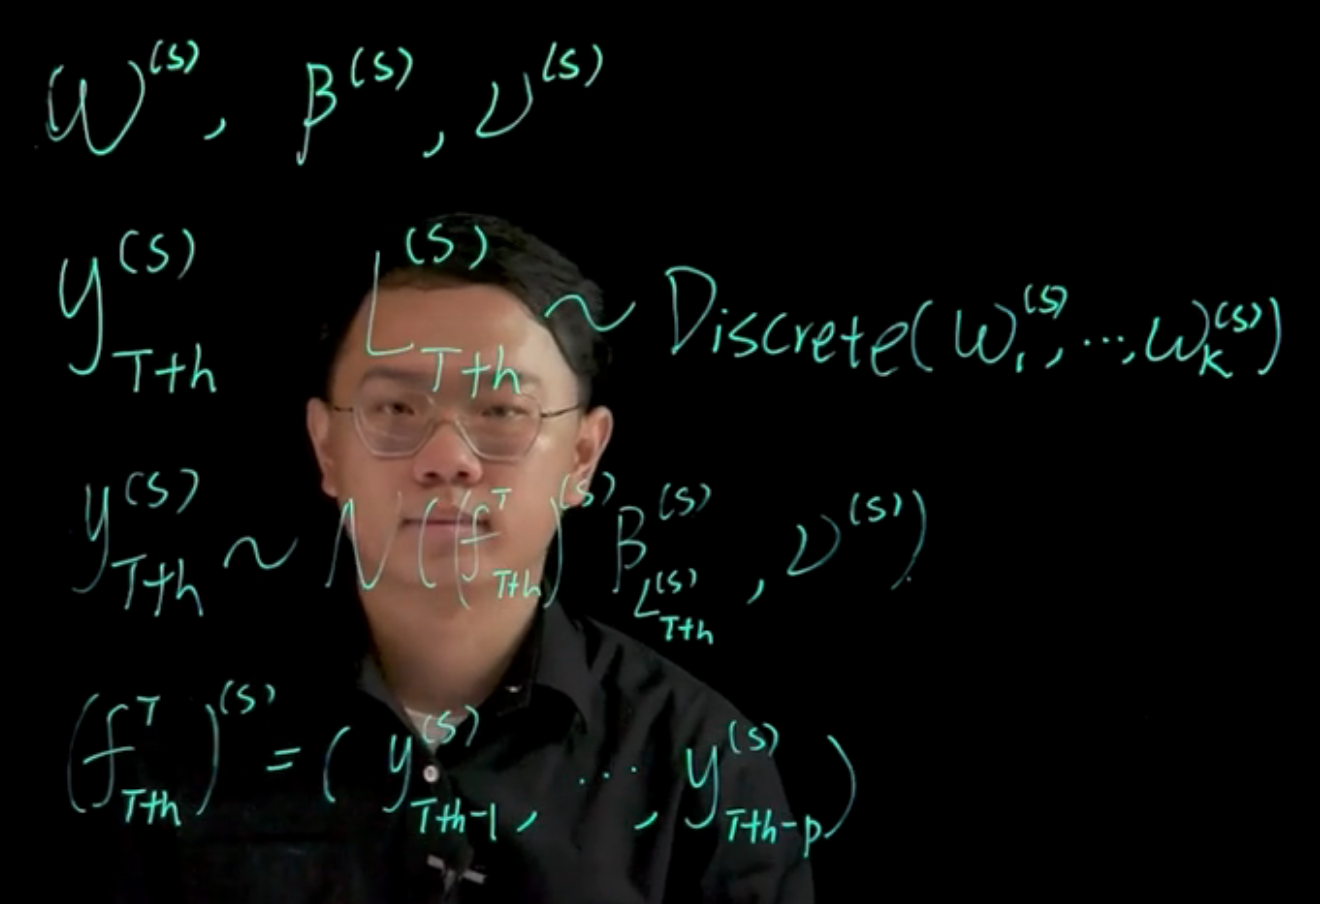 ω^(s), β^(s), ν^(s)
y_{T+h}^(s) L_{T+h}^(s) ~ Discrete(ω_1^(s), ..., ω_k^(s))
y_{T+h}^(s) ~ N((f_{T+h}^T)^(s) β_{L_{T+h}^(s)}^(s), ν^(s))
(f_{T+h}^T)^(s) = (y_{T+h-1}^(s), ..., y_{T+h-p}^(s))